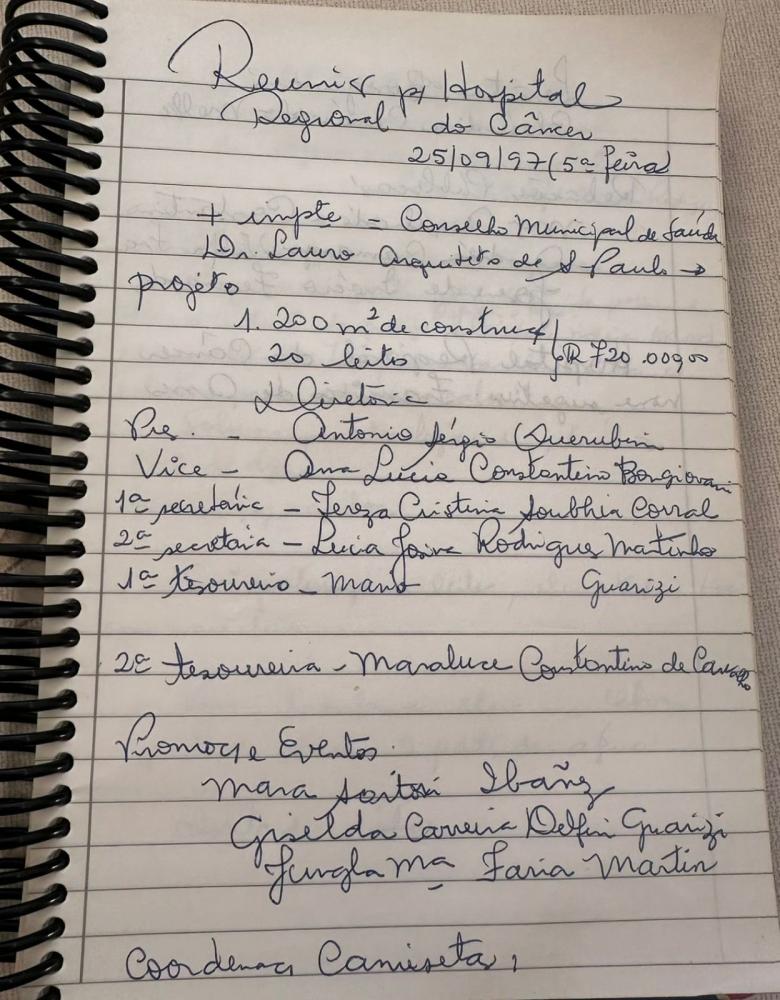 Reunião p/ Hospital
Regional do Câncer
25/09/97 (5ª feira)
+ impte = Conselho Municipal de Saúde
Dr. Lauro Arquiteto de S Paulo →
projéto
1.200 m² de construç
20 leitos R 720.000,00
Diretoria
Pres. - Antonio Sérgio Querubim
Vice - Ana Lúcia Constantino Bongiovani
1ª secretária - Tereza Cristina Soubhia Corral
2ª secretaia - Lucia Rodrigues Martinho
1º tesoureiro - Mario Guarizi
2ª tesoureira - Maraluce Constantino de Carvalho
Promoç e Eventos.
Mara Sartori Ibañez
Giselda Carreira Delfin Guarizi
Mª Faria Martin
Coordenaç Camiseta,